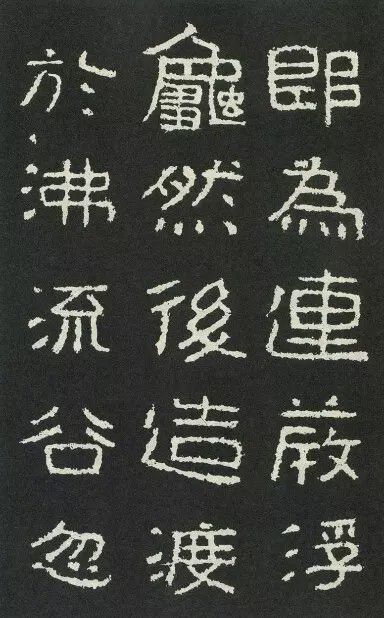 即為連葭浮
龜然後造渡
於沸流谷忽